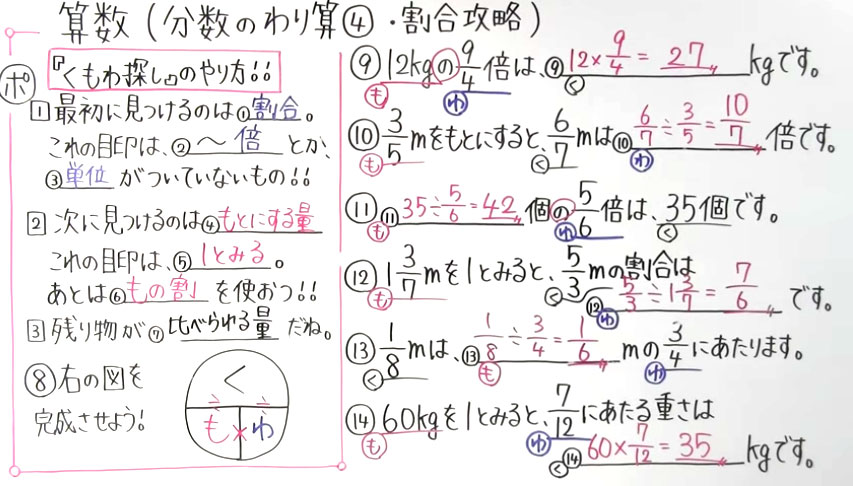 算数(分数のわり算④・割合攻略)
ポ
『くもわ探し』のやり方!!
1 最初に見つけるのは①割合。
これの目印は、②〜倍とか、
③単位がついていないもの!!
2 次に見つけるのは④もとにする量
これの目印は、⑤1とみる。
あとは⑥もの割を使おう!!
3 残り物が⑦比べられる量だね。
⑧右の図を
完成させよう!
く
÷ ÷
も×わ
⑨12kgの9/4倍は、⑨12×9/4=27kgです。
も わ く
⑩3/5mをもとにすると、6/7mは⑩6/7÷3/5=10/7倍です。
も く わ
⑪⑪35÷5/6=42個の5/6倍は、35個です。
も わ く
⑫1 3/7mを1とみると、5/3mの割合は
も く
⑫5/3÷1 3/7=7/6です。
わ
⑬1/8mは、⑬1/8÷3/4=1/6mの3/4にあたります。
く も わ
⑭60kgを1とみると、7/12にあたる重さは
も わ
く⑭60×7/12=35kgです。